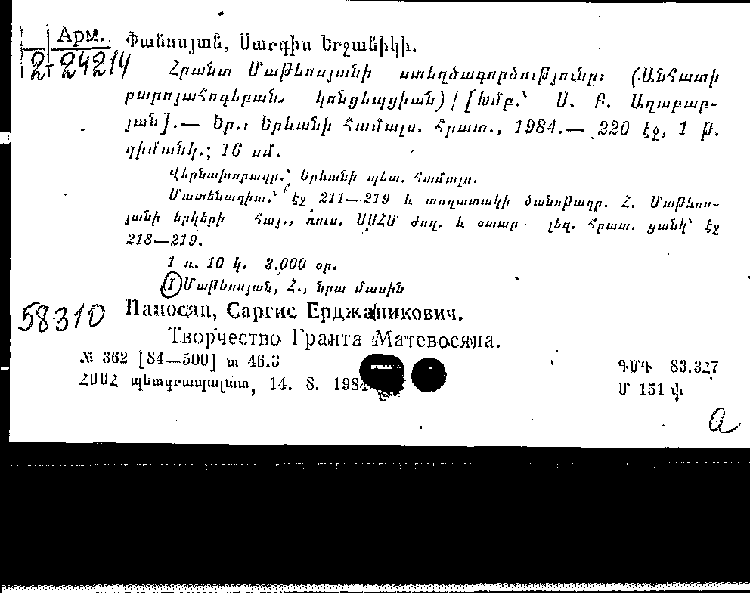 Арм.
2-24214
Փանոսյան, Սարգիս Երջանիկի.
Հրանտ Մաթևոսյանի ստեղծագործությունը: (Անհատի
բարոյահոգեբան. կոնցեպցիան) / [Խմբ.՝ Ս. Բ. Աղաբաբ-
յան].— Եր.: Երևանի համալս. հրատ., 1984.— 220 էջ, 1 թ.
դիմանկ.; 16 սմ.
Վերնախորագր.՝ Երևանի պետ. համալս.
Մատենագիտ.՝ էջ 211—219 և տողատակի ծանոթագր. Հ. Մաթևոս-
յանի երկերի հայ., ռուս. ՍՍՀՄ ժող. և օտար լեզ. հրատ. ցանկ՝ էջ
218—219.
1 ռ. 10 կ. 3.000 օր.
(1) Մաթևոսյան, Հ., նրա մասին
58310
Паносян, Саргис Ерджаникович.
Творчество Гранта Матевосяна.
№ 362 [84—500] տ 46.3
ՀՍՍՀ պետգրապալատ, 14. 8. 1984
ԳՄԴ 83.3Հ7
Մ 151 փ.
a